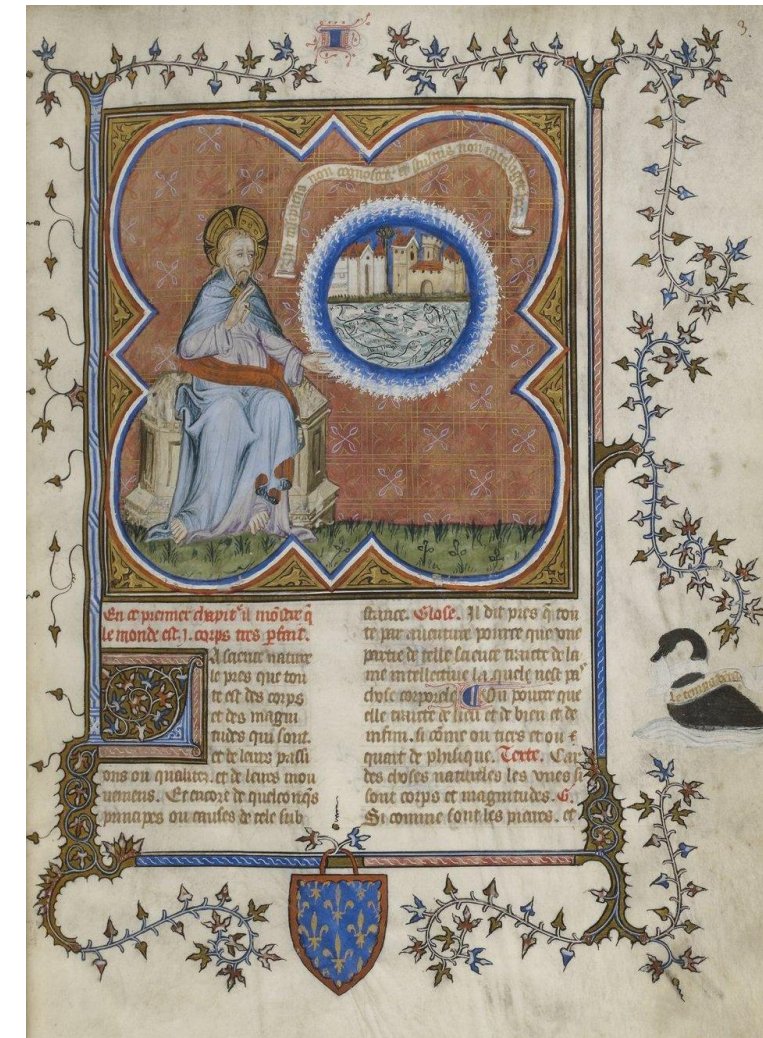 3.
Vir insipiens non cognoscet et stultus non intelliget hec
En ce premier chapitre il monstre q̄
le monde est .i. corps tres pfait.
La science nature
le pres que tou
te est des corps
et des magni
tudes qui sont.
et de leurs passi
ons ou qualitez. et de leurs mou
uemens. Et encore de quelconq̄s
principes ou causes de tele sub
stance. Glose. Il dit pres q̄ tou
te par auenture pource que vne
partie de telle science traicte de la
me intellectiue la quele nest pas
chose corporele. Ou pource que
elle traicte de lieu et de bien et de
infini. si cōme ou tiers et ou
quart de phisique. Texte. Car
des choses natureles les vnes si
sont corps et magnitudes. G.
Si comme sont les pieres. et
Le temps venra